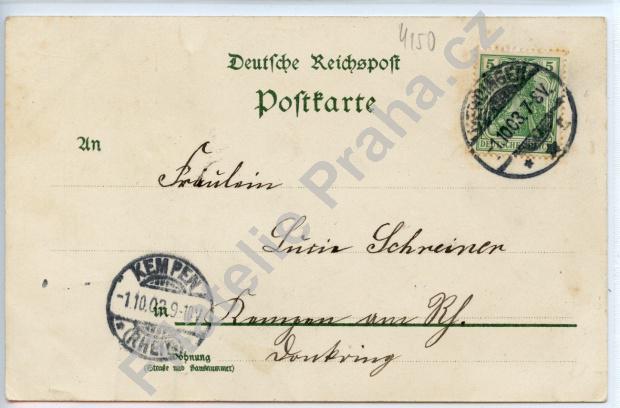 4150
Deutsche Reichspost
Postkarte
5 5
1.10.03.7-8V.
DEUTSCHES REICH
An
Fräulein
Lucie Schreiner
KEMPEN
-1.10.03.9-10V.
(RHEIN)
in Kempen am Rh.
Wohnung
(Straße und Hausnummer)
Donkring
Filatelie Praha.cz